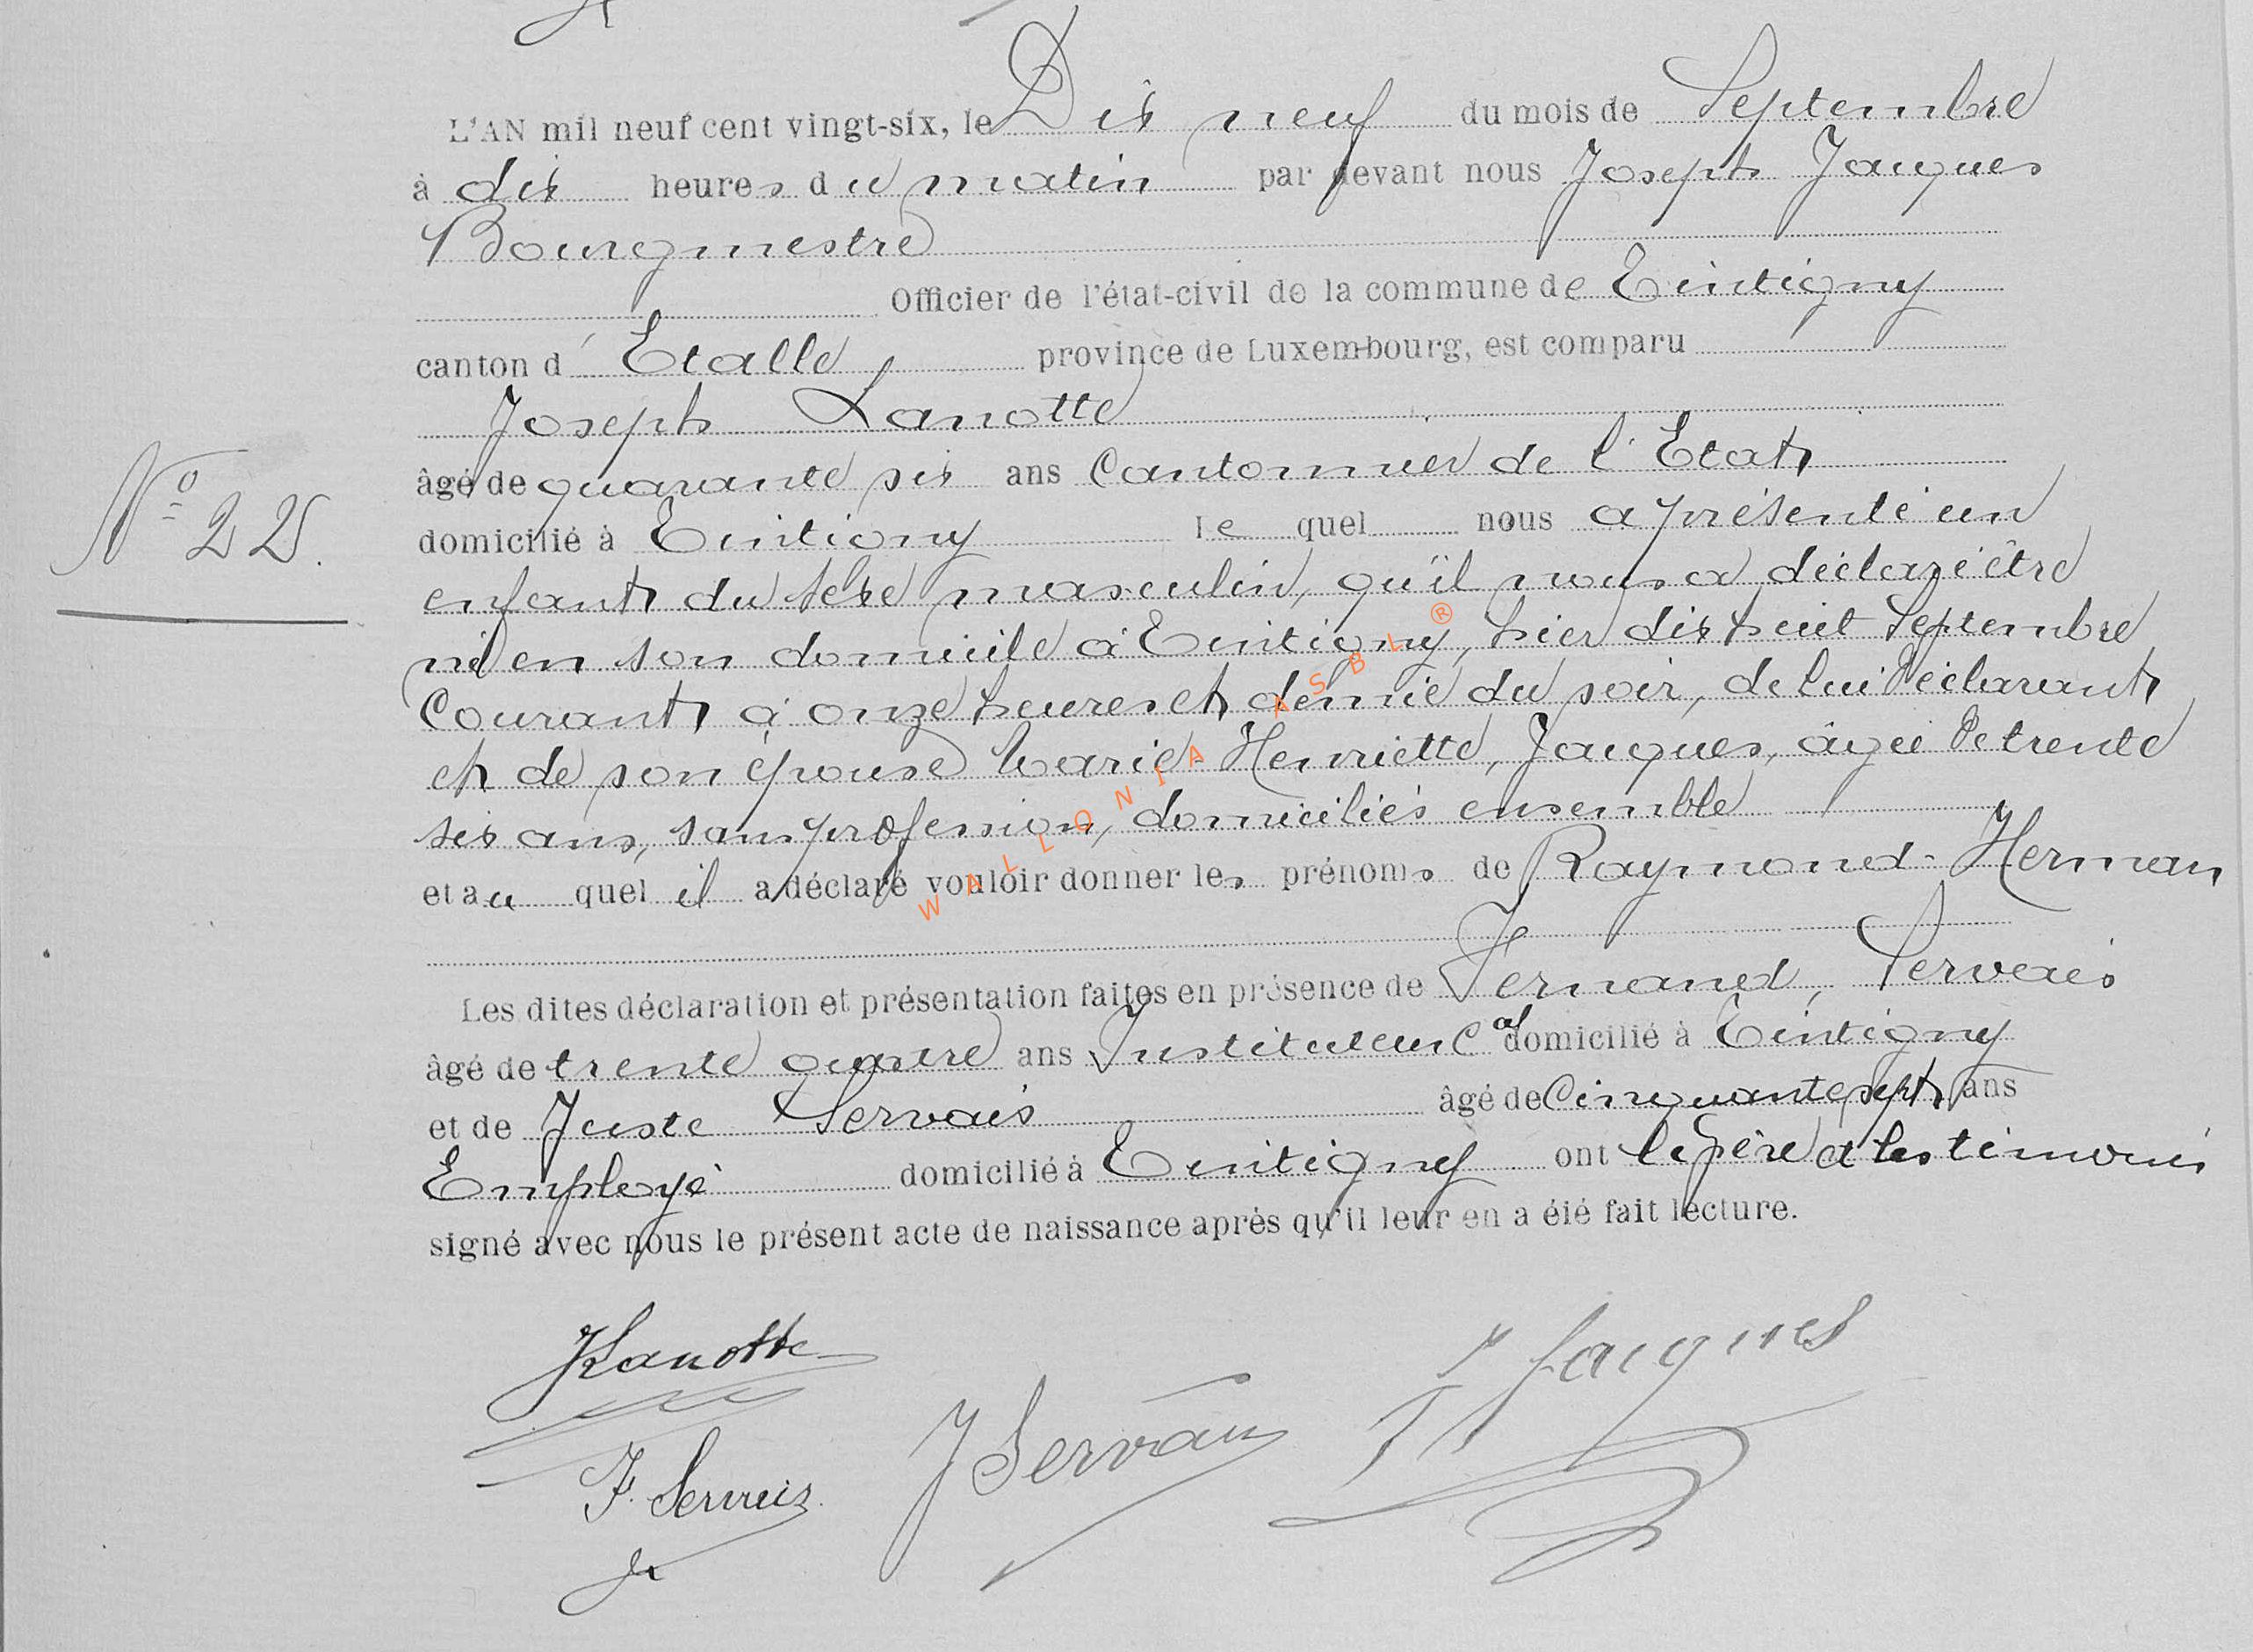 L'AN mil neuf cent vingt-six, le Dix neuf du mois de Septembre
à dix heures du matin par devant nous Joseph Jacques
Bourgmestre
Officier de l'état-civil de la commune de Tintigny
canton d'Etalle province de Luxembourg, est comparu
Joseph Lanotte
âgé de quarante six ans Cantonnier de l'Etat
N° 22.
domicilié à Tintigny le quel nous a présenté un
enfant du sexe masculin, qu'il nous a déclaré être
né en son domicile à Tintigny, hier dix huit Septembre
Courant à onze heures et demie du soir, de lui Déclarant
et de son épouse Marie Henriette, Jacques, âgée De trente
six ans, sans profession, domiciliés ensemble
et au quel il a déclaré vouloir donner les prénoms de Raymond-Herman
Les dites déclaration et présentation faites en présence de Fernand, Servais
âgé de trente quatre ans Instituteur Cal domicilié à Tintigny
et de Juste Servais âgé de Cinquante sept ans
Employé domicilié à Tintigny ont le père et les témoins
signé avec nous le présent acte de naissance après qu'il leur en a été fait lecture.
JLanotte
J Jacques
J Servais
F. Servais
WALLONIA ASBL ®